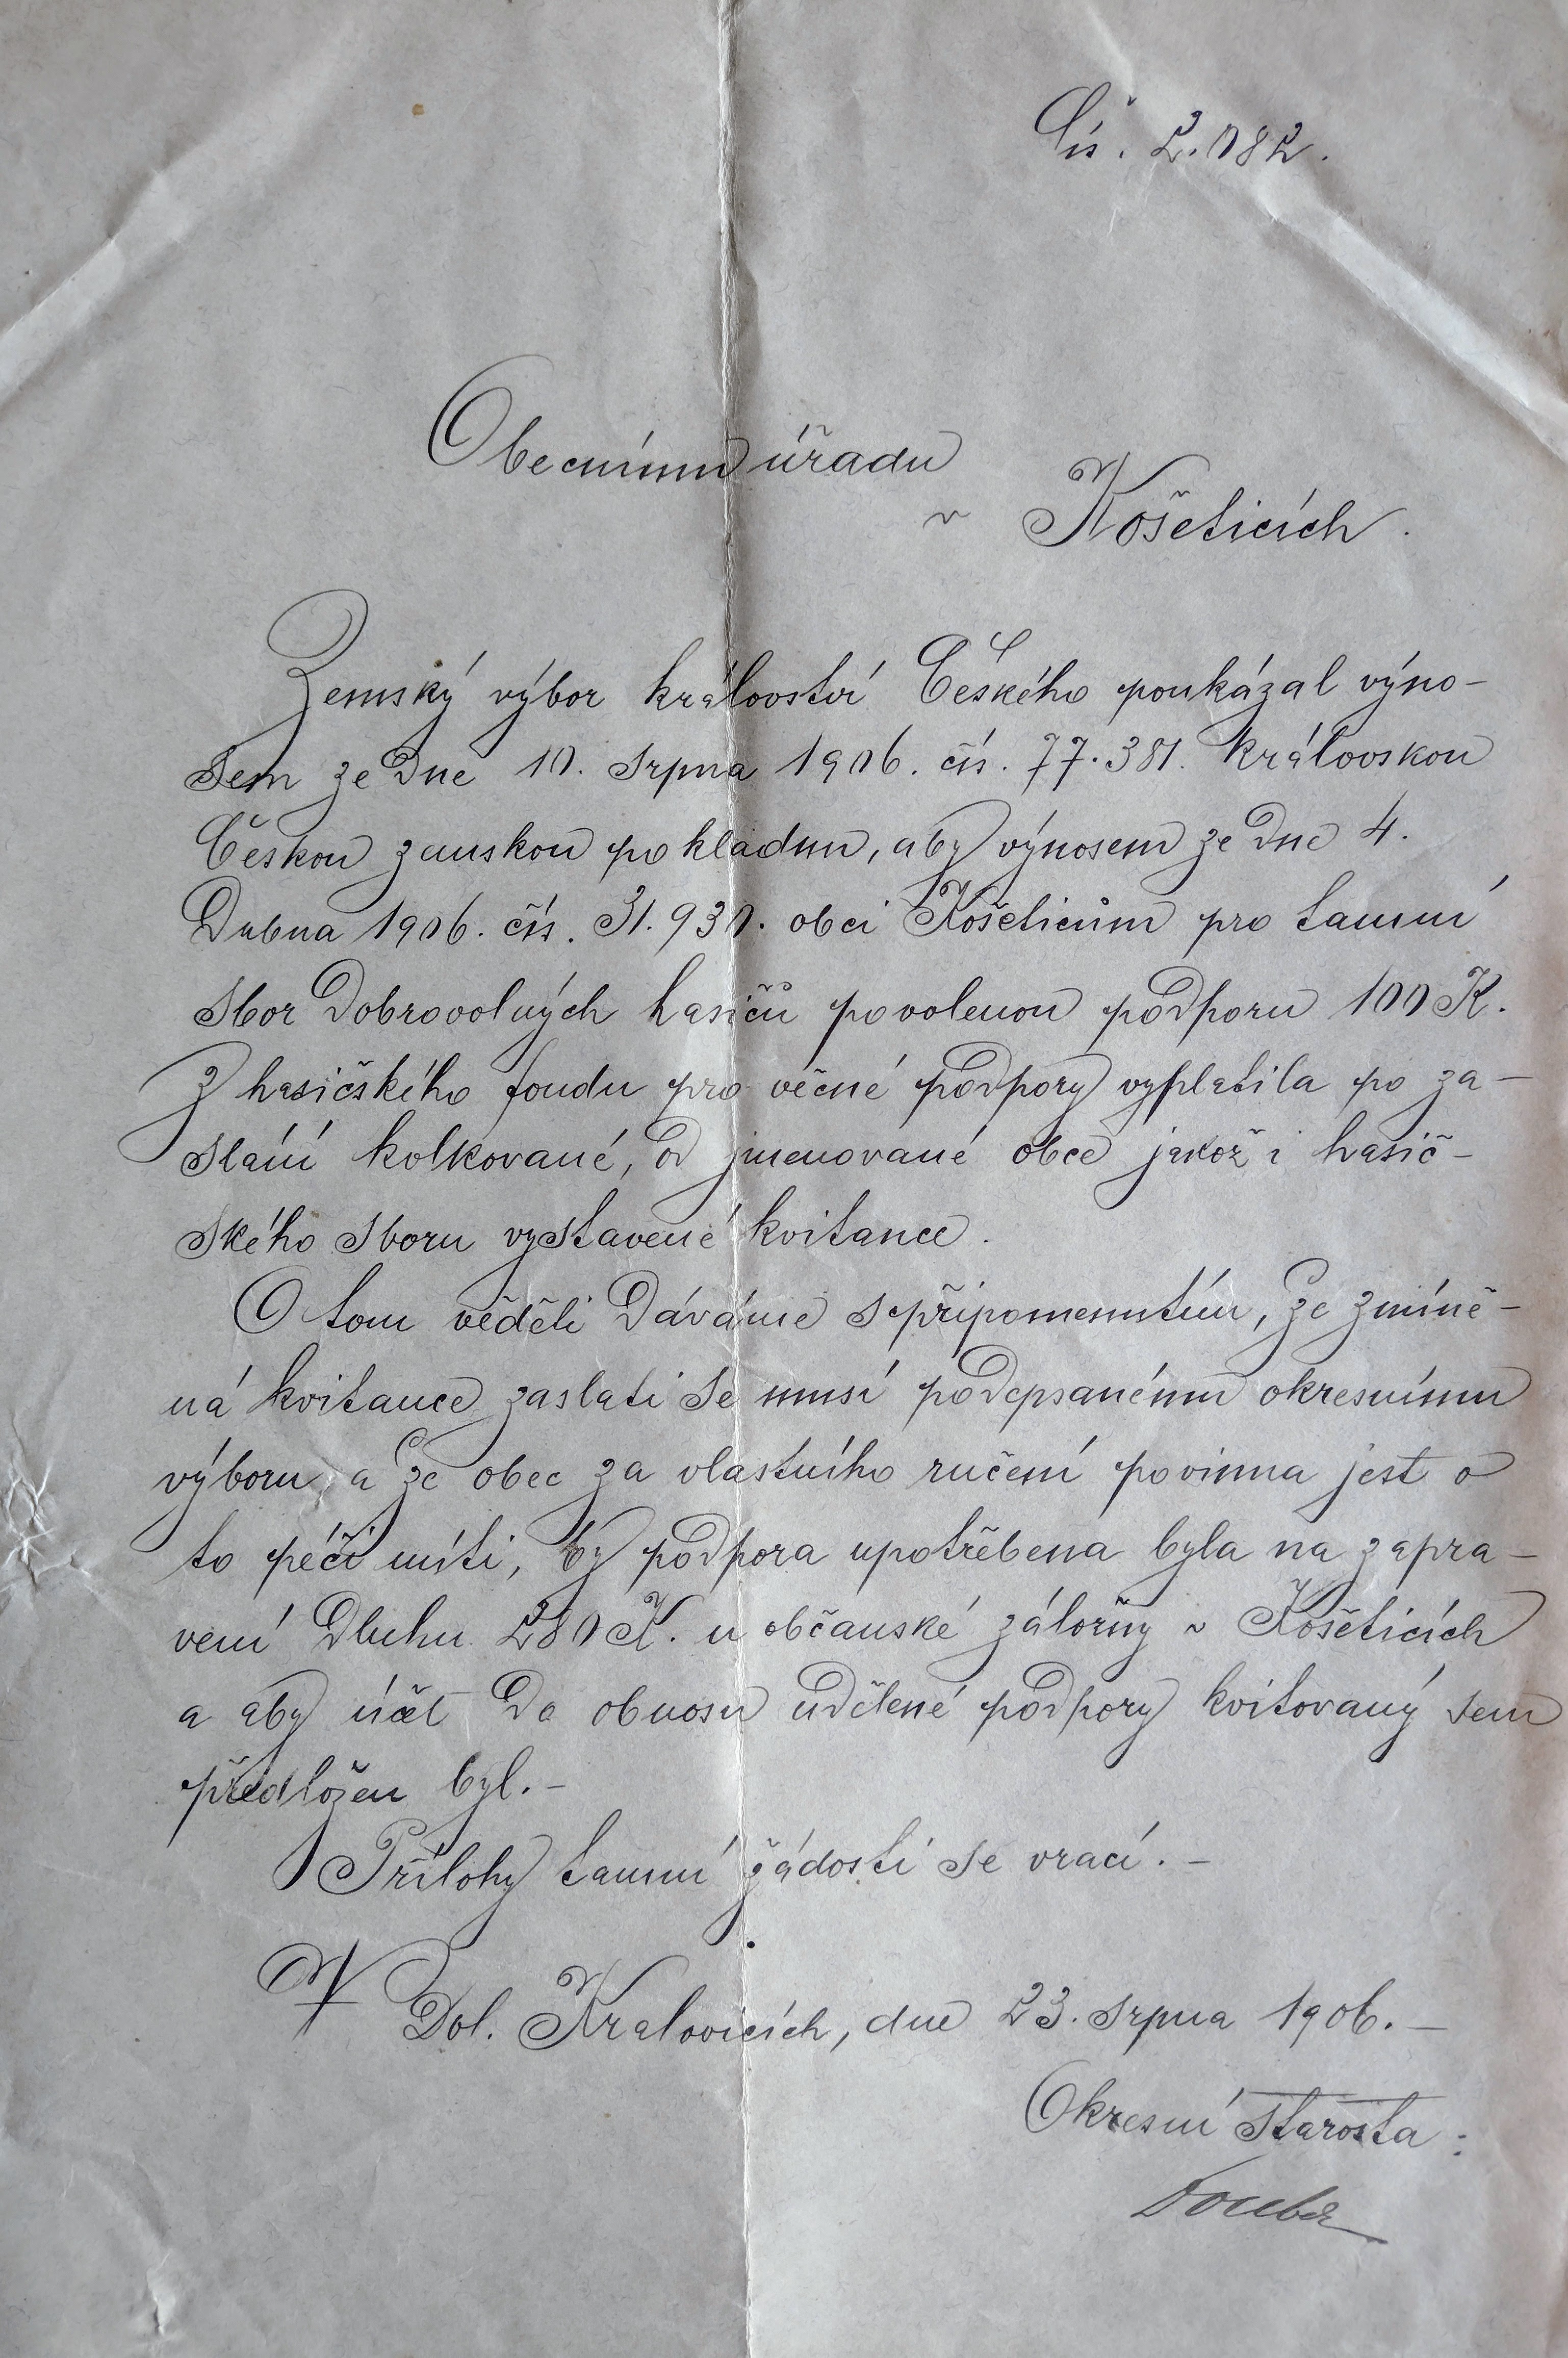 Čís. 2.082.
Obecnímu úřadu
v Košeticích.
Zemský výbor království Českého poukázal výno-
sem ze dne 10. srpna 1906. čís. 77.381. královskou
Českou zemskou pokladnu, aby výnosem ze dne 4.
Dubna 1906. čís. 31.930. obci Košeticům pro tamní
sbor dobrovolných hasičů povolenou podporu 100 K.
z hasičského fondu pro věčné podpory vyplatila po za-
slání kolkované, od jmenované obce jakož i hasič-
ského sboru vystavené kvitance.
O tom věděti dáváme s připomenutím, že zmíně-
ná kvitance zaslati se musí podepsanému okresnímu
výboru a že obec za vlastního ručení povinna jest o
to péči míti, by podpora upotřebena byla na zapra-
vení dluhu 280 K. u občanské záložny v Košeticích
a aby účet do obnosu udělené podpory kvitovaný sem
předložen byl.-
Přílohy tamní žádosti se vrací.-
V Dol. Kralovicích, dne 23. srpna 1906.-
Okresní starosta: